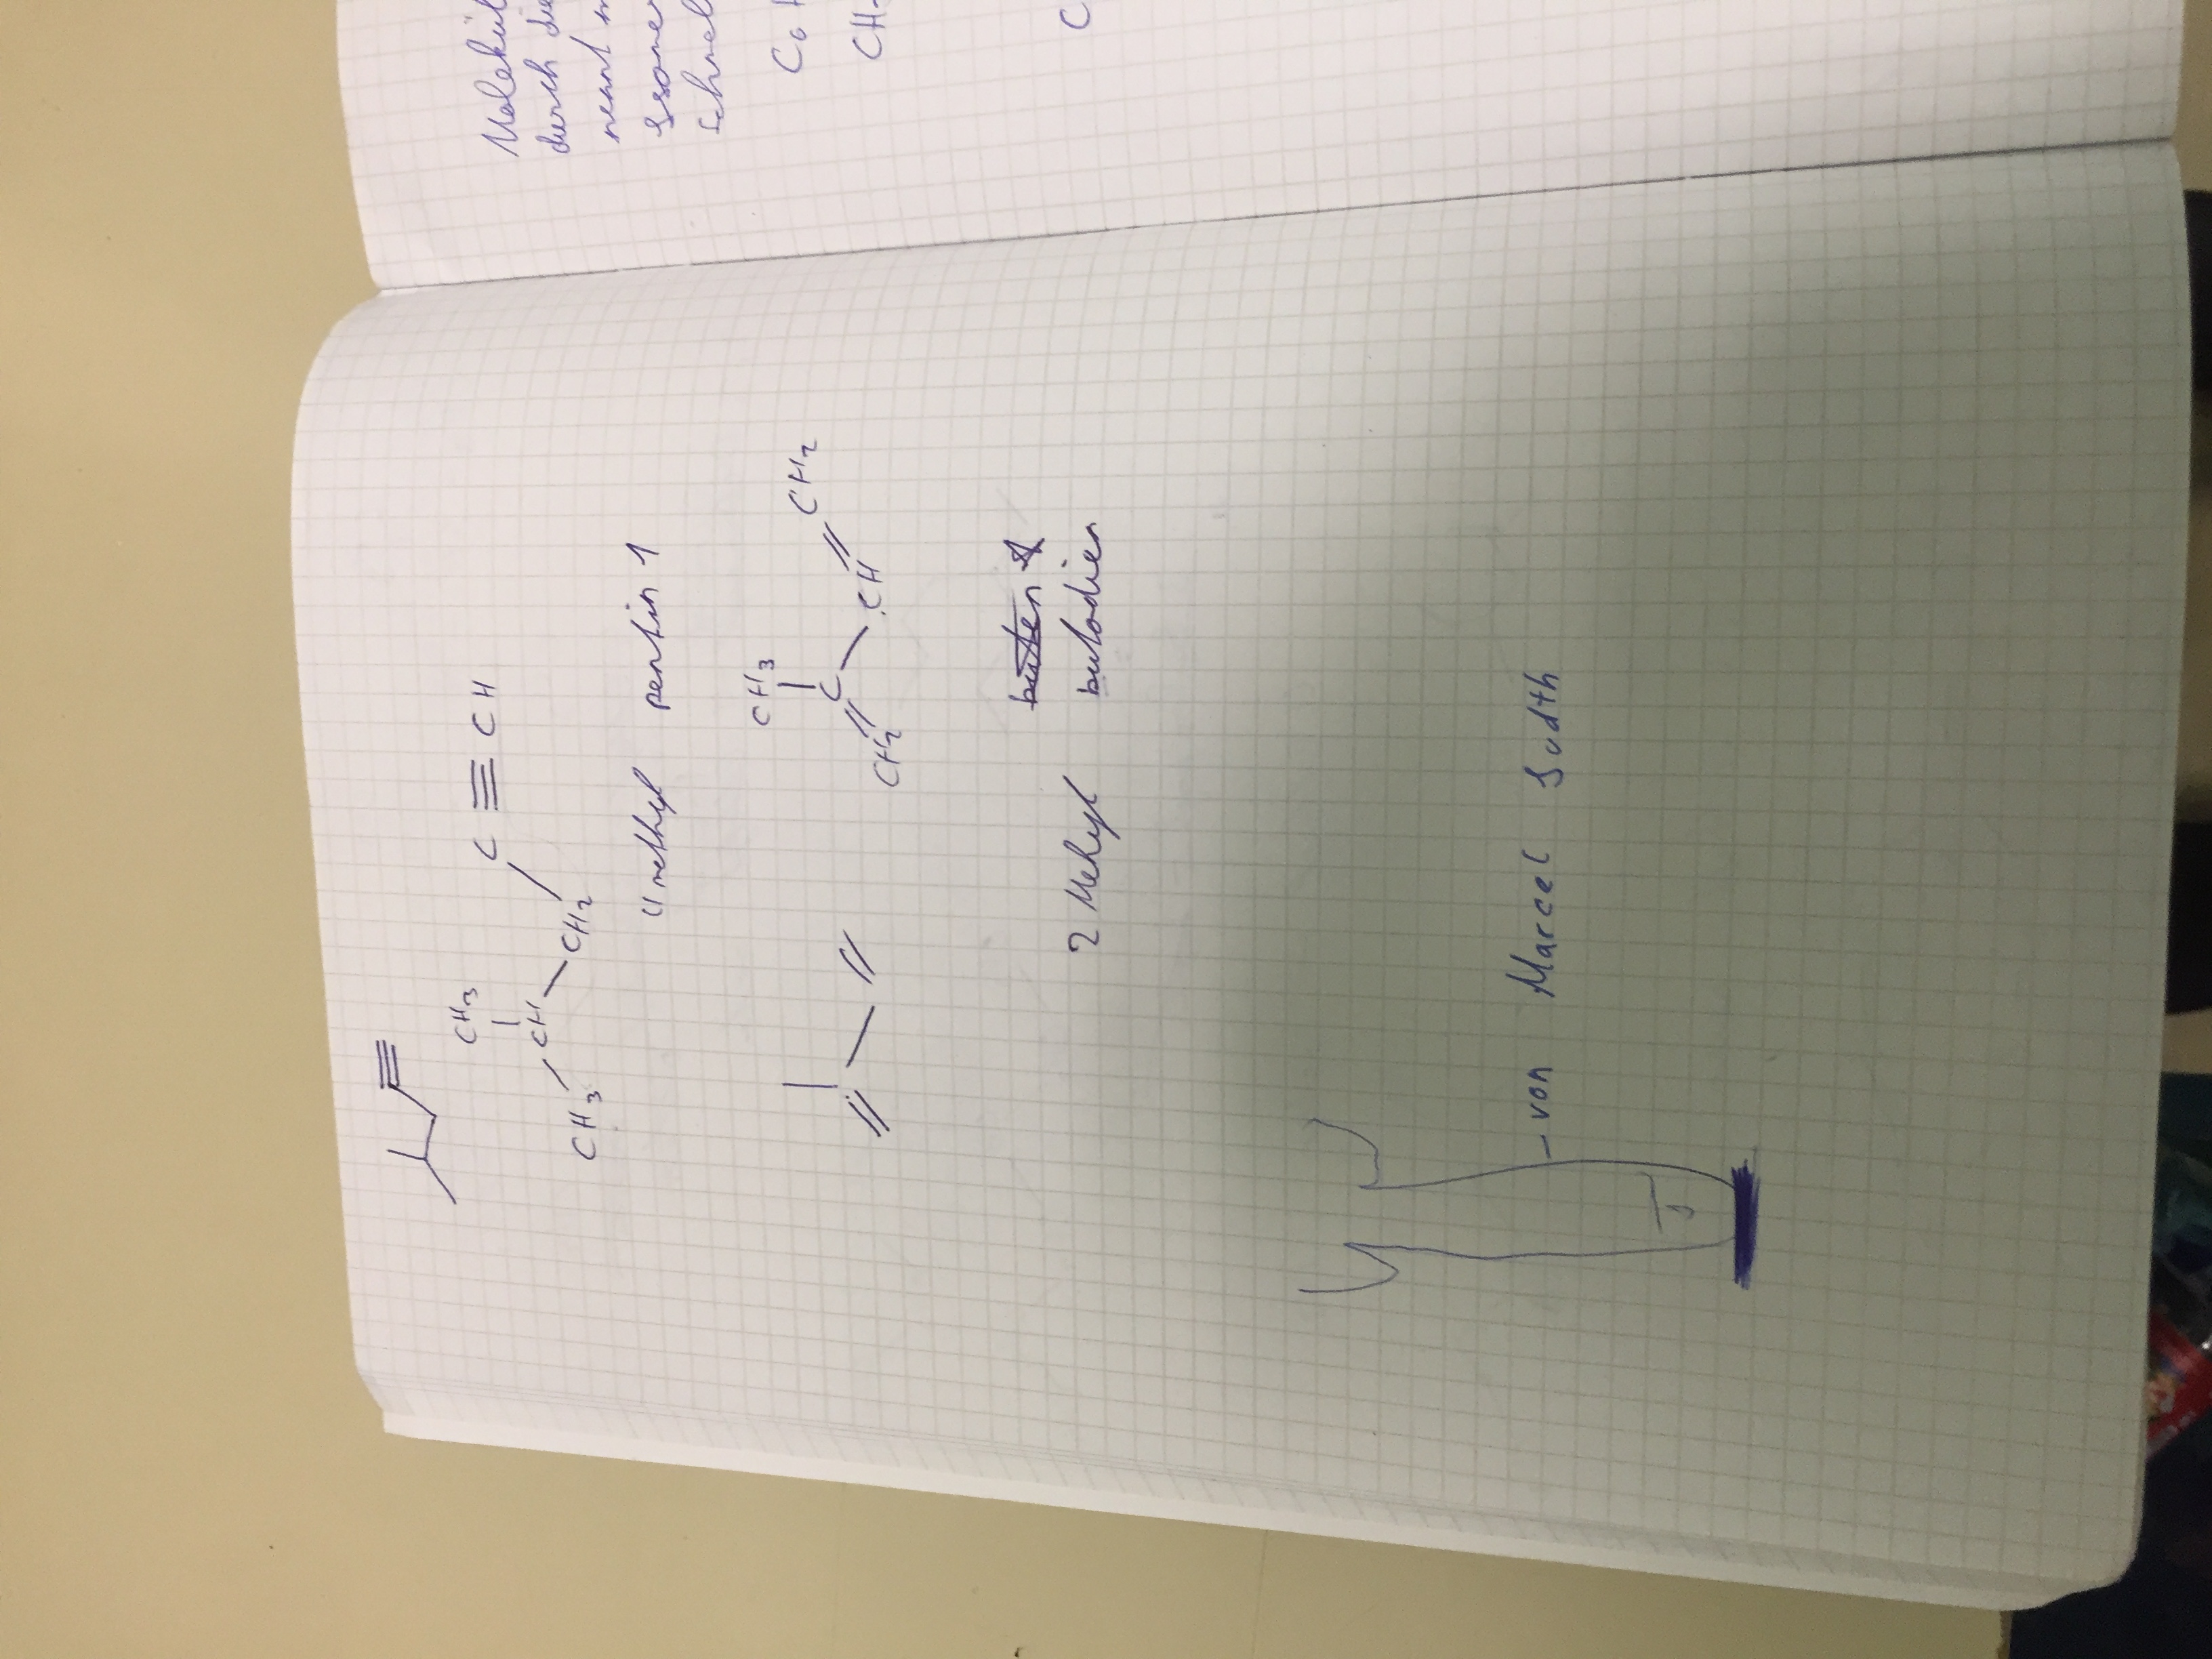 CH3
C ≡ CH
CH
CH3
CH2
4methyl pentin 1
CH3
CH2
C
CH2
CH
buten 1
2 Mehyl butadien
von Marcel
Molekül
durch die
nennt m
Isomer
schnel
C6 H
CH
C